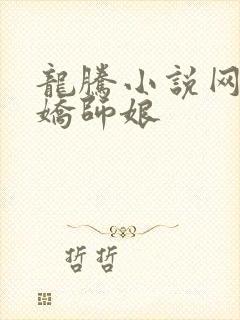 龍騰小説网
嬌師娘
哲哲